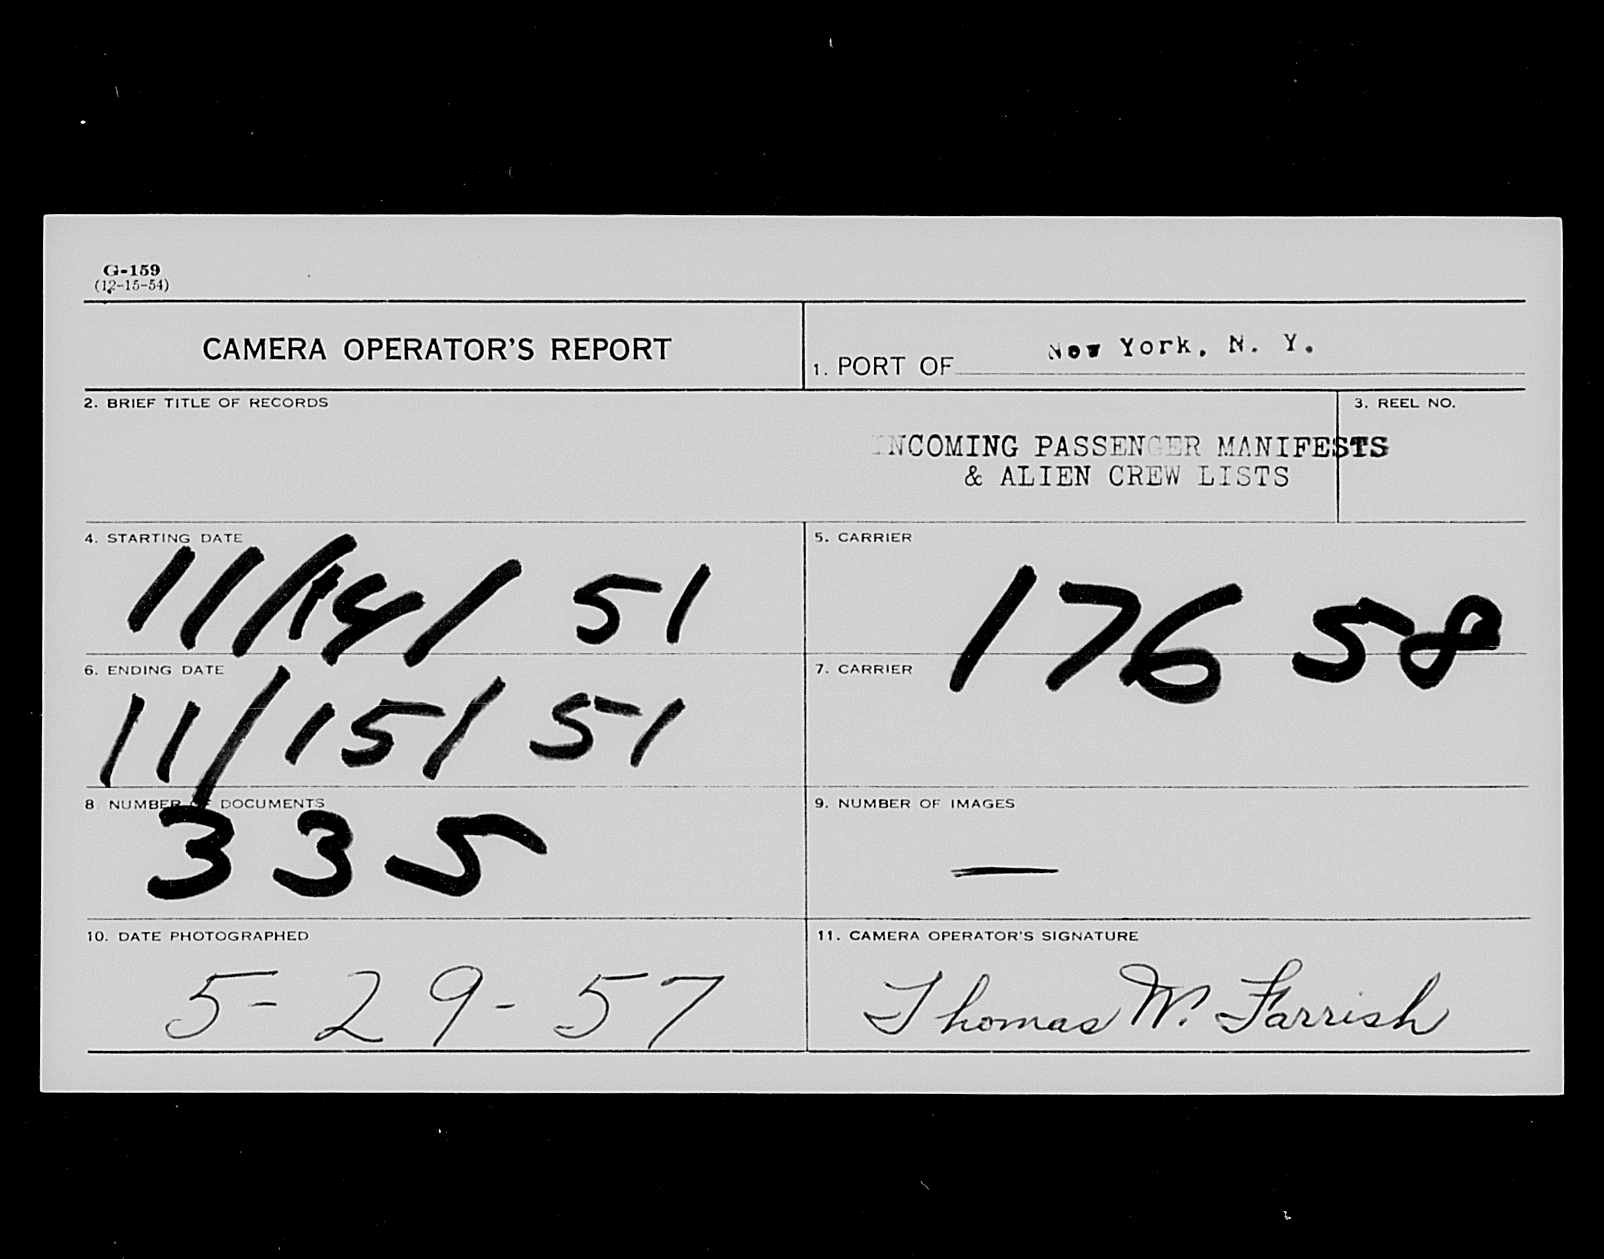 G-159
(12-15-54)
CAMERA OPERATOR'S REPORT
1. PORT OF New York, N. Y.
2. BRIEF TITLE OF RECORDS
3. REEL NO.
INCOMING PASSENGER MANIFESTS
& ALIEN CREW LISTS
4. STARTING DATE
11/14/51
5. CARRIER
17658
6. ENDING DATE
11/15/51
7. CARRIER
8 NUMBER OF DOCUMENTS
335
9. NUMBER OF IMAGES
—
10. DATE PHOTOGRAPHED
5-29-57
11. CAMERA OPERATOR'S SIGNATURE
Thomas W. Farrish